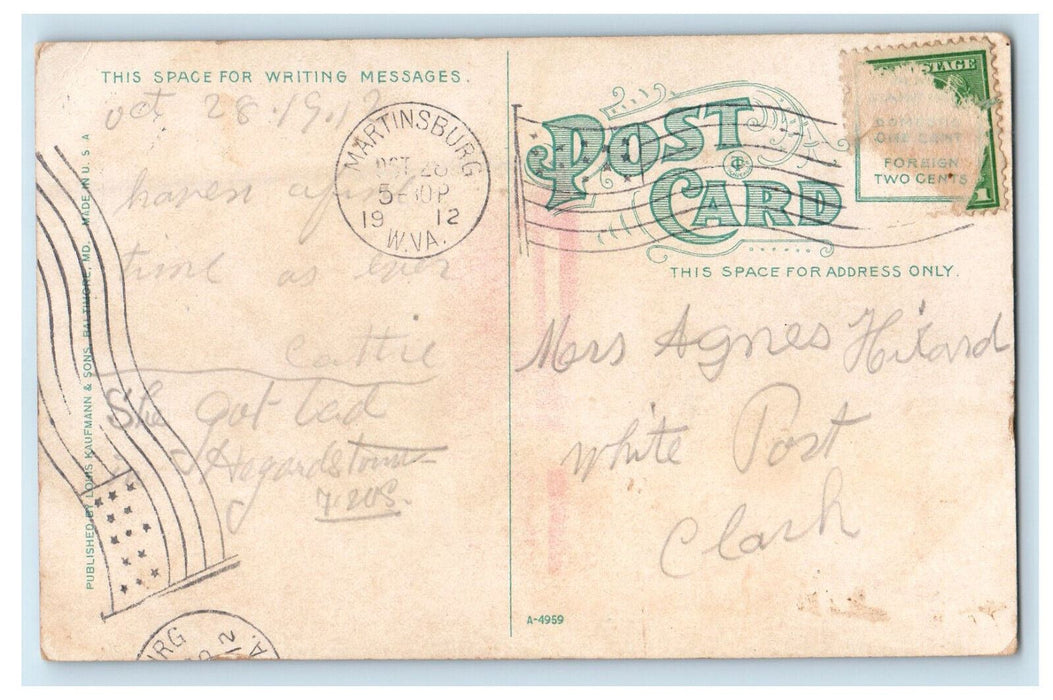 THIS SPACE FOR WRITING MESSAGES.
oct 28 1912
haven a fine
time as ever
Cattie
She got Ted
Hagardstown
PUBLISHED BY LOUIS KAUFMANN & SONS, BALTIMORE, MD. MADE IN U.S.A
MARTINSBURG
OCT 28
5 30P
19 12
W.VA.
POST CARD
POSTAGE
DOMESTIC
ONE CENT
FOREIGN
TWO CENTS
1
THIS SPACE FOR ADDRESS ONLY.
Mrs Agnes Hilard
White Post
Clark
A-4959